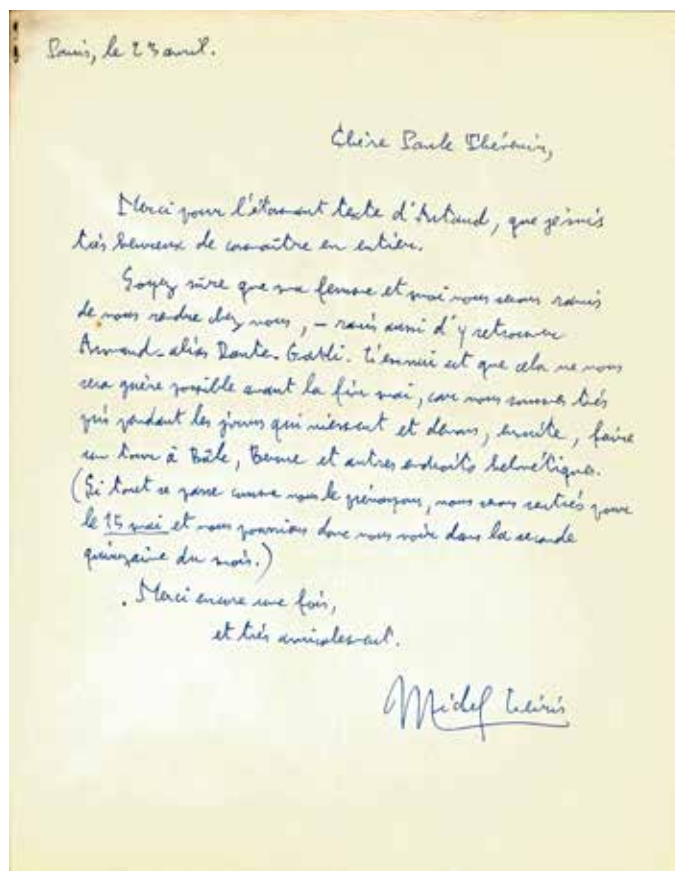 Paris, le 23 avril.
Chère Paule Thévenin,
Merci pour l'étonnant texte d'Artaud, que je suis
très heureux de connaître en entier.
Soyez sûre que ma femme et moi nous serons ravis
de nous rendre chez vous, – ravis aussi d'y retrouver
Armand - alias Dante - Gatti. L'ennui est que cela ne nous
sera guère possible avant la fin mai, car nous sommes très
pris pendant les jours qui viennent et devons, ensuite, faire
un tour à Bâle, Berne et autres endroits helvétiques.
(Si tout se passe comme nous le prévoyons, nous serons rentrés pour
le 15 mai et nous pourrions donc nous voir dans la seconde
quinzaine du mois.)
Merci encore une fois,
et très amicalement.
Michel Leiris